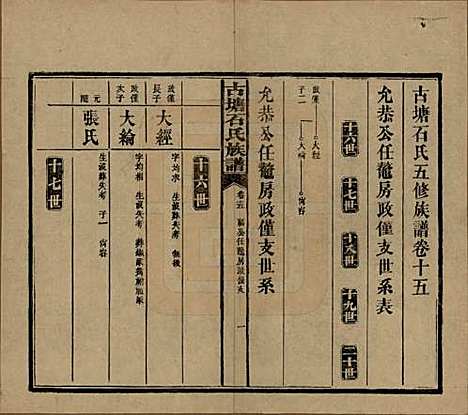 古塘石氏五修族譜卷十五
允恭公任鼇房政僅支世系表
十六世 十七世 十八世 十九世 二十世
政僅
子二
大經
大綸
宵容
允恭公任鼇房政僅支世系
古塘石氏族譜
卷十五
一
十六世
政僅
長子
大經
字均永 生歿葬失考 無後
政僅
次子
大綸
字均相 生歿失考
元配
張氏
生歿葬失考 子一 宵容
十七世